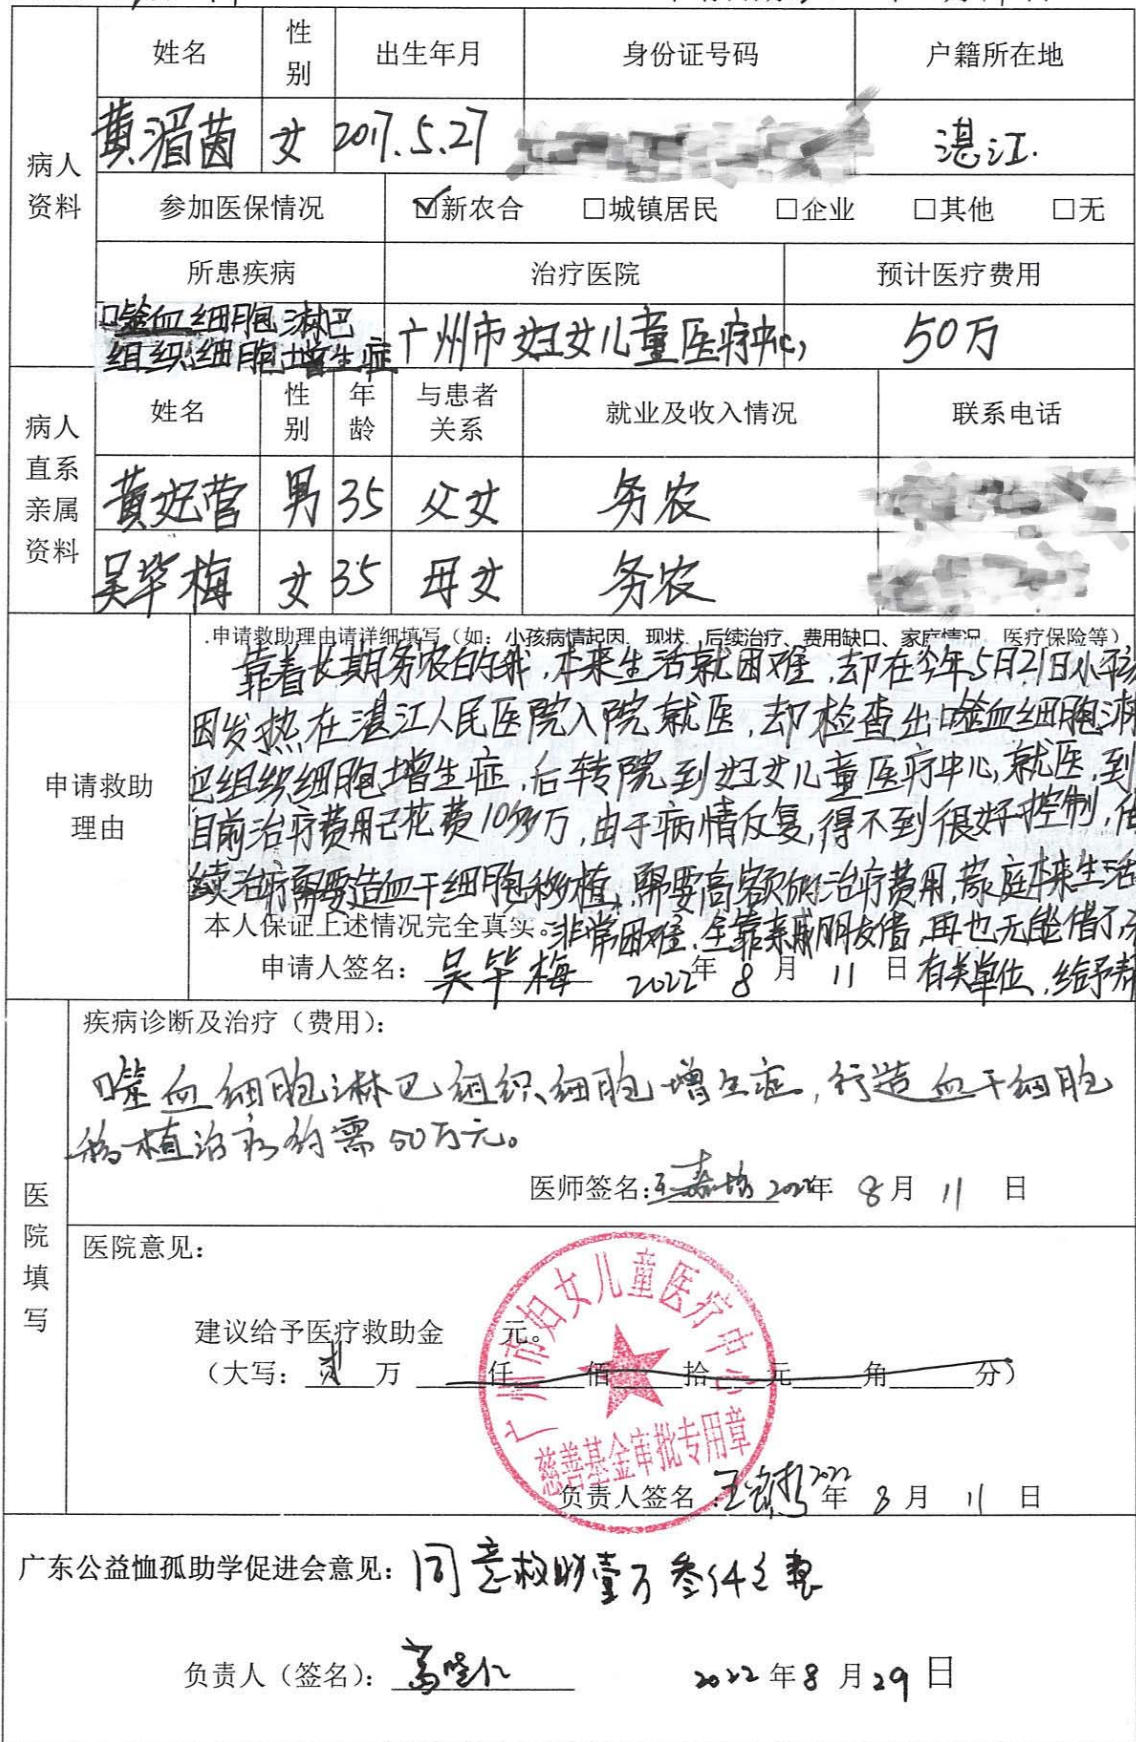 姓名 性别 出生年月 身份证号码 户籍所在地
病人资料
黄湄茵 女 2017.5.27 湛江.
参加医保情况 ☑新农合 □城镇居民 □企业 □其他 □无
所患疾病 治疗医院 预计医疗费用
噬血细胞淋巴
组织细胞增生症 广州市妇女儿童医疗中心 50万
病人直系亲属资料
姓名 性别 年龄 与患者关系 就业及收入情况 联系电话
黄 营 男 35 父女 务农
吴华梅 女 35 母女 务农
申请救助理由
.申请救助理由请详细填写（如：小孩病情起因、现状、后续治疗、费用缺口、家庭情况、医疗保险等）
靠着长期务农的我,本来生活就困难,却在今年5月21日小孩
因发热在湛江人民医院入院就医,却检查出噬血细胞淋
巴组织细胞增生症,后转院到妇女儿童医疗中心就医,到
目前治疗费用已花费10多万,由于病情反复,得不到很好控制,
续治疗需要造血干细胞移植,需要高额的治疗费用,家庭本来生活
本人保证上述情况完全真实。非常困难,全靠亲戚朋友借,再也无能借了,
申请人签名：吴华梅 2022年8月11日 有关单位,给予帮
医院填写
疾病诊断及治疗（费用）：
噬血细胞淋巴组织细胞增生症,行造血干细胞
移植治疗约需50万元。
医师签名: 2022年8月11日
医院意见：
建议给予医疗救助金 元。
（大写：贰万 仟 佰 拾 元 角 分）
广州市妇女儿童医疗中心
慈善基金审批专用章
负责人签名 2022年8月11日
广东公益恤孤助学促进会意见：同意救助壹万叁仟元整
负责人（签名）： 2022年8月29日